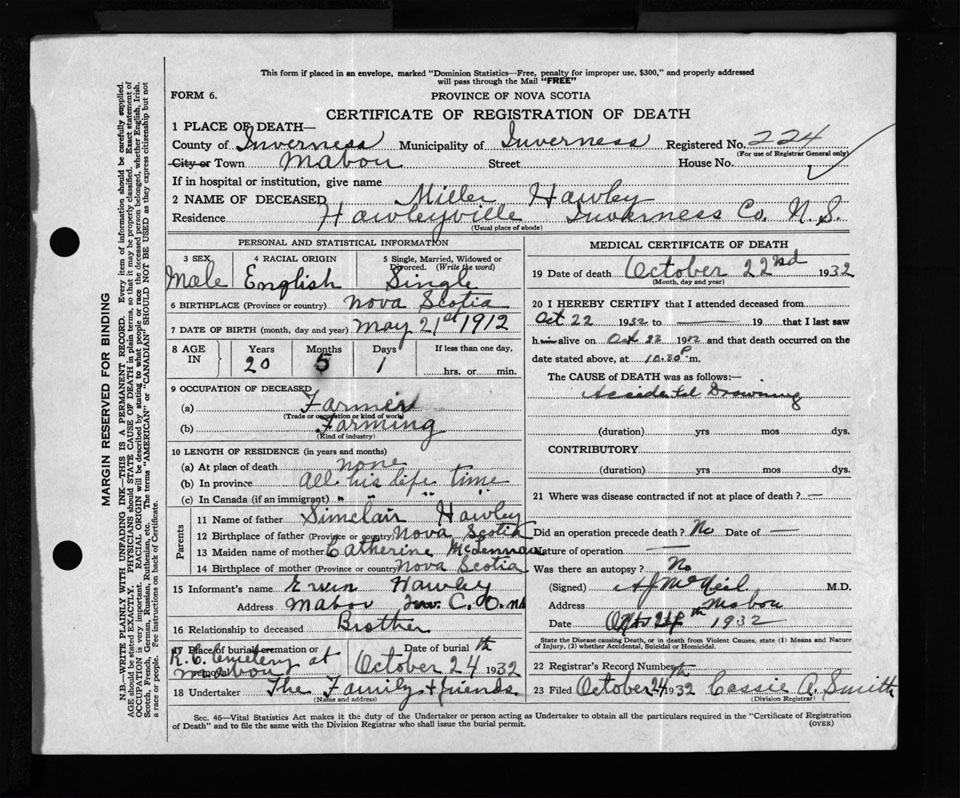 This form if placed in an envelope, marked "Dominion Statistics—Free, penalty for improper use, $300," and properly addressed
will pass through the Mail "FREE"
FORM 6.
PROVINCE OF NOVA SCOTIA
CERTIFICATE OF REGISTRATION OF DEATH
1 PLACE OF DEATH—
County of Inverness Municipality of Inverness Registered No. 224
(For use of Registrar General only)
City or Town Mabou Street House No.
If in hospital or institution, give name
2 NAME OF DECEASED Miller Hawley
Residence Hawleyville Inverness Co. N.S.
(Usual place of abode)
PERSONAL AND STATISTICAL INFORMATION
3 SEX Male
4 RACIAL ORIGIN English
5 Single, Married, Widowed or Divorced. (Write the word) Single
6 BIRTHPLACE (Province or country) Nova Scotia
7 DATE OF BIRTH (month, day and year) May 21st 1912
8 AGE IN Years 20 Months 5 Days 1 If less than one day, hrs. or min.
9 OCCUPATION OF DECEASED
(a) Farmer
(Trade or occupation or kind of work)
(b) Farming
(Kind of industry)
10 LENGTH OF RESIDENCE (in years and months)
(a) At place of death none
(b) In province All his life time
(c) In Canada (if an immigrant) " " " "
Parents
11 Name of father Simclair Hawley
12 Birthplace of father (Province or country) Nova Scotia
13 Maiden name of mother Catherine McLennan
14 Birthplace of mother (Province or country) Nova Scotia
15 Informant's name Erwin Hawley
Address Mabou Inv. C. O. NS
16 Relationship to deceased Brother
17 Place of burial cremation or Date of burial
R. C. Cemetery at Mabou October 24th 1932
18 Undertaker The Family & friends
(Name and address)
MEDICAL CERTIFICATE OF DEATH
19 Date of death October 22nd 1932
(Month, day and year)
20 I HEREBY CERTIFY that I attended deceased from
Oct 22 1932 to — 19 that I last saw
h im alive on Oct 22 1932 and that death occurred on the
date stated above, at 10.30 P m.
The CAUSE of DEATH was as follows:—
Accidental Drowning
(duration) yrs mos dys.
CONTRIBUTORY
(duration) yrs mos dys.
21 Where was disease contracted if not at place of death? —
Did an operation precede death? No Date of —
Nature of operation —
Was there an autopsy? No
(Signed) A J McNeil M.D.
Address Mabou
Date 24th 1932
State the Disease causing Death, or in death from Violent Causes, state (1) Means and Nature
of Injury, (2) whether Accidental, Suicidal or Homicidal.
22 Registrar's Record Number
23 Filed October 24th 1932 Cassie A. Smith
(Division Registrar)
Sec. 46—Vital Statistics Act makes it the duty of the Undertaker or person acting as Undertaker to obtain all the particulars required in the "Certificate of Registration
of Death" and to file the same with the Division Registrar who shall issue the burial permit.
(OVER)
MARGIN RESERVED FOR BINDING
N.B.—WRITE PLAINLY WITH UNFADING INK—THIS IS A PERMANENT RECORD. Every item of information should be carefully supplied.
AGE should be stated EXACTLY. PHYSICIANS should STATE CAUSE OF DEATH in plain terms, so that it may be properly classified. Exact statement of
OCCUPATION is very important. RACIAL ORIGIN will be described by stating to what people or race the deceased person belonged, whether English, Irish,
Scotch, French, German, Russian, Ruthenian, etc. The terms "AMERICAN" or "CANADIAN" SHOULD NOT BE USED as they express citizenship but not
a race or people. Fee instructions on back of Certificate.